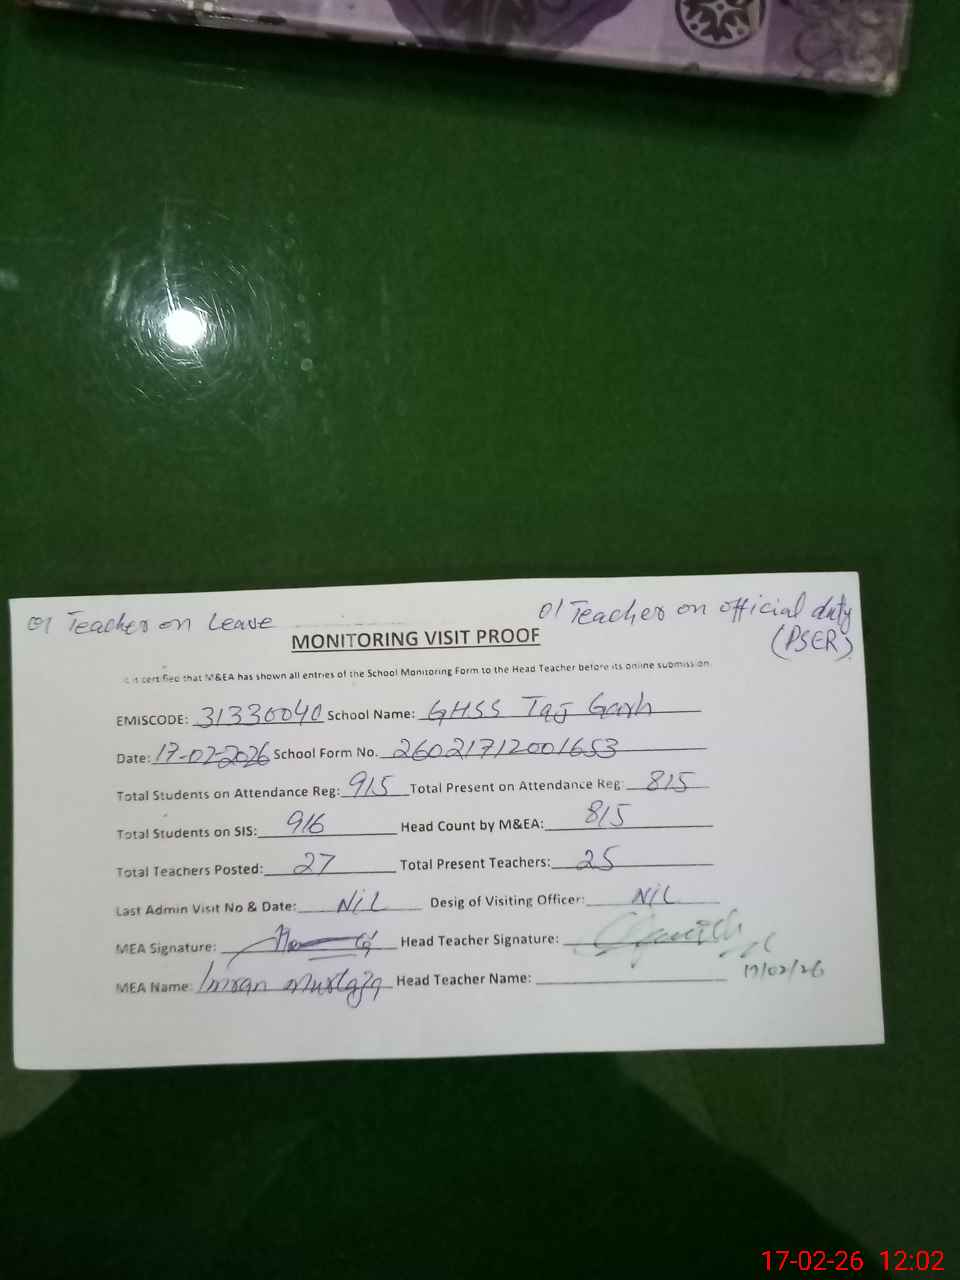 01 Teacher on Leave
01 Teacher on official duty
(PSER)
MONITORING VISIT PROOF
It is certified that M&EA has shown all entries of the School Monitoring Form to the Head Teacher before its online submission.
EMISCODE: 31330040 School Name: GHSS Taj Garh
Date: 17-02-2026 School Form No. 26021712001653
Total Students on Attendance Reg: 915 Total Present on Attendance Reg: 815
Total Students on SIS: 916 Head Count by M&EA: 815
Total Teachers Posted: 27 Total Present Teachers: 25
Last Admin Visit No & Date: Nil Desig of Visiting Officer: Nil
MEA Signature: Head Teacher Signature:
17/02/26
MEA Name: Imran Murtaza Head Teacher Name:
17-02-26 12:02